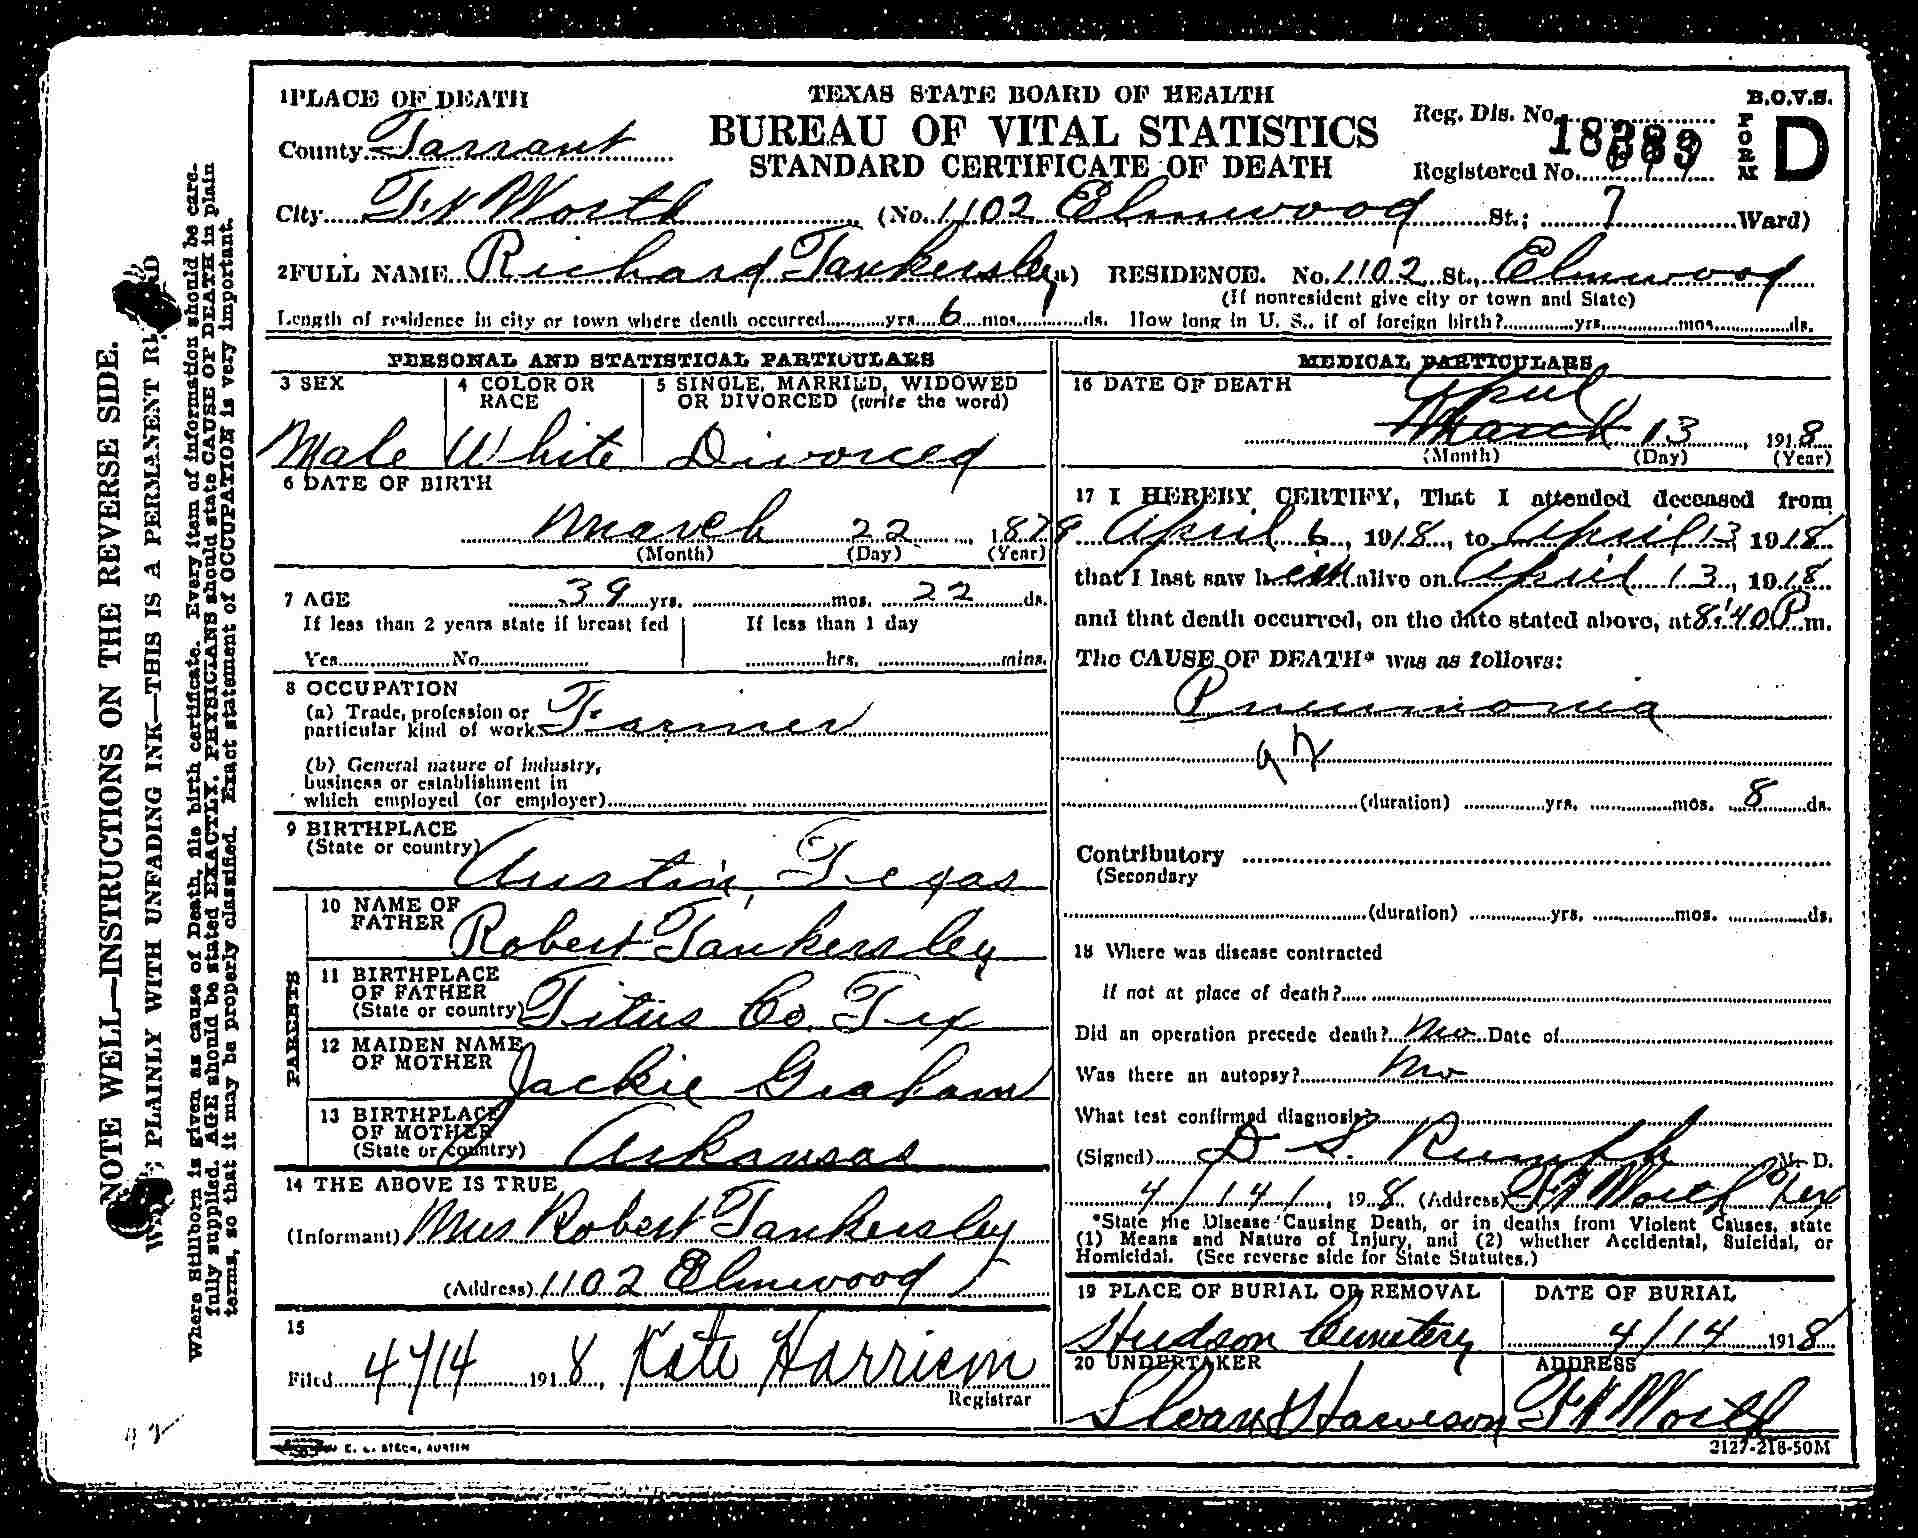 1 PLACE OF DEATH
TEXAS STATE BOARD OF HEALTH
BUREAU OF VITAL STATISTICS
STANDARD CERTIFICATE OF DEATH
B.O.V.S.
FORM D
Reg. Dis. No.
18383
Registered No.
County Tarrant
City Ft Worth (No. 1102 Elmwood St.; 7 Ward)
2 FULL NAME Richard Tankersley RESIDENCE. No. 1102 St., Elmwood
(If nonresident give city or town and State)
Length of residence in city or town where death occurred yrs. 6 mos. ds. How long in U. S., if of foreign birth? yrs. mos. ds.
PERSONAL AND STATISTICAL PARTICULARS
3 SEX
Male
4 COLOR OR RACE
White
5 SINGLE, MARRIED, WIDOWED
OR DIVORCED (write the word)
Divorced
6 DATE OF BIRTH
March 22, 1879
(Month) (Day) (Year)
7 AGE 39 yrs. mos. 22 ds.
If less than 2 years state if breast fed
Yes No
If less than 1 day
hrs. mins.
8 OCCUPATION
(a) Trade, profession or
particular kind of work Farmer
(b) General nature of industry,
business or establishment in
which employed (or employer)
9 BIRTHPLACE
(State or country)
Austin, Texas
PARENTS
10 NAME OF
FATHER
Robert Tankersley
11 BIRTHPLACE
OF FATHER
(State or country) Titus Co. Tex
12 MAIDEN NAME
OF MOTHER
Jackie Graham
13 BIRTHPLACE
OF MOTHER
(State or country) Arkansas
14 THE ABOVE IS TRUE
(Informant) Mrs Robert Tankersley
(Address) 1102 Elmwood
15
Filed 4/14 1918, Kate Harrison
Registrar
E. L. STECK, AUSTIN
MEDICAL PARTICULARS
16 DATE OF DEATH
April
March 13, 1918
(Month) (Day) (Year)
17 I HEREBY CERTIFY, That I attended deceased from
April 6, 1918, to April 13, 1918
that I last saw him alive on April 13, 1918
and that death occurred, on the date stated above, at 8:40 P. m.
The CAUSE OF DEATH* was as follows:
Pneumonia
92
(duration) yrs. mos. 8 ds.
Contributory
(Secondary
(duration) yrs. mos. ds.
18 Where was disease contracted
if not at place of death?
Did an operation precede death? No Date of
Was there an autopsy? No
What test confirmed diagnosis?
(Signed) D S. Rumph M. D.
4/14/, 1918 (Address) Ft Worth Tex
*State the Disease Causing Death, or in deaths from Violent Causes, state
(1) Means and Nature of Injury, and (2) whether Accidental, Suicidal, or
Homicidal. (See reverse side for State Statutes.)
19 PLACE OF BURIAL OR REMOVAL
Hudson Cemetery
DATE OF BURIAL
4/14 1918
20 UNDERTAKER
ADDRESS
Ft Worth
2127-218-50M
NOTE WELL—INSTRUCTIONS ON THE REVERSE SIDE.
PLAINLY WITH UNFADING INK—THIS IS A PERMANENT
Where Stillborn is given as cause of Death, file birth certificate. Every item of information should be care-
fully supplied. AGE should be stated EXACTLY. PHYSICIANS should state CAUSE OF DEATH in plain
terms, so that it may be properly classified. Exact statement of OCCUPATION is very important.
92